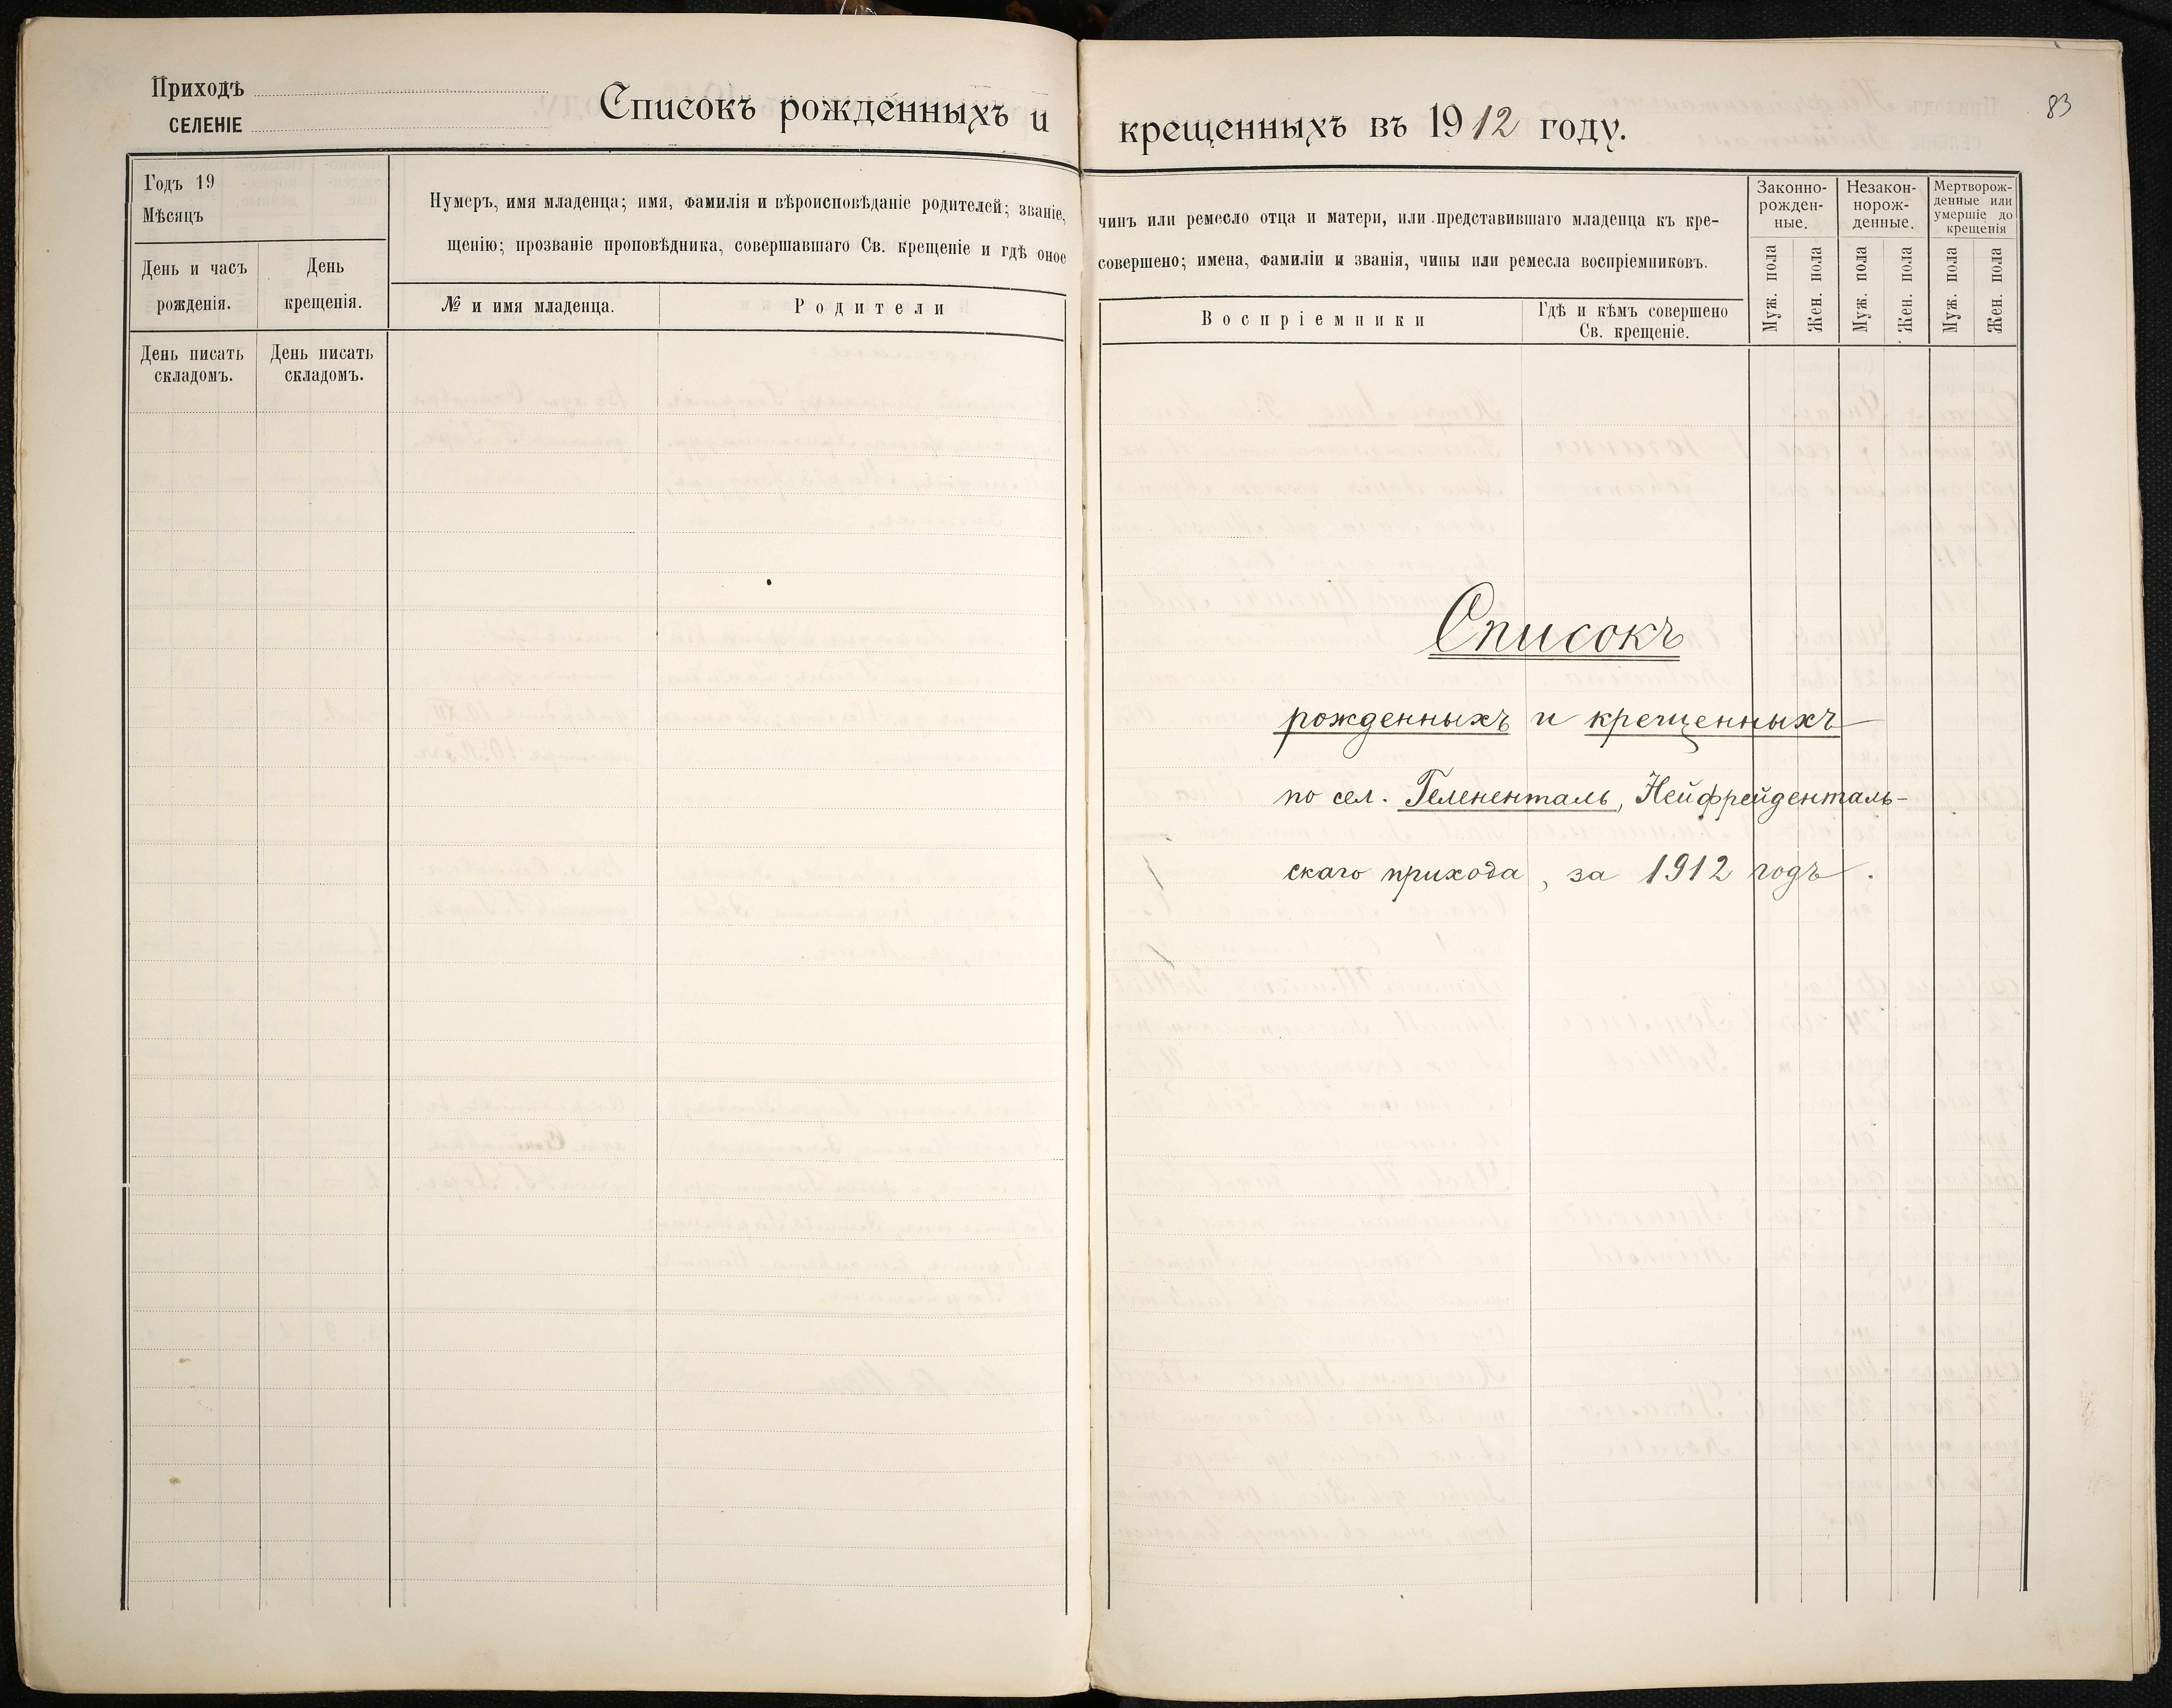 Приходъ
СЕЛЕНІЕ
Списокъ рожденныхъ и крещенныхъ въ 1912 году.
83
Годъ 19
Мѣсяцъ
День и часъ рожденія.
День крещенія.
Нумеръ, имя младенца; имя, фамилія и вѣроисповѣданіе родителей; званіе, чинъ или ремесло отца и матери, или представившаго младенца къ кре-
щенію; прозваніе проповѣдника, совершавшаго Св. крещеніе и гдѣ оное совершено; имена, фамиліи и званія, чины или ремесла воспріемниковъ.
№ и имя младенца.
Родители
Воспріемники
Гдѣ и кѣмъ совершено
Св. крещеніе.
Законно-
рожден-
ные.
Незакон-
норож-
денные.
Мертворож-
денные или
умершіе до
крещенія
Муж. пола
Жен. пола
Муж. пола
Жен. пола
Муж. пола
Жен. пола
День писать
складомъ.
День писать
складомъ.
Списокъ
рожденныхъ и крещенныхъ
по сел. Гелененталь, Нейфрейденталь-
скаго прихода, за 1912 годъ.